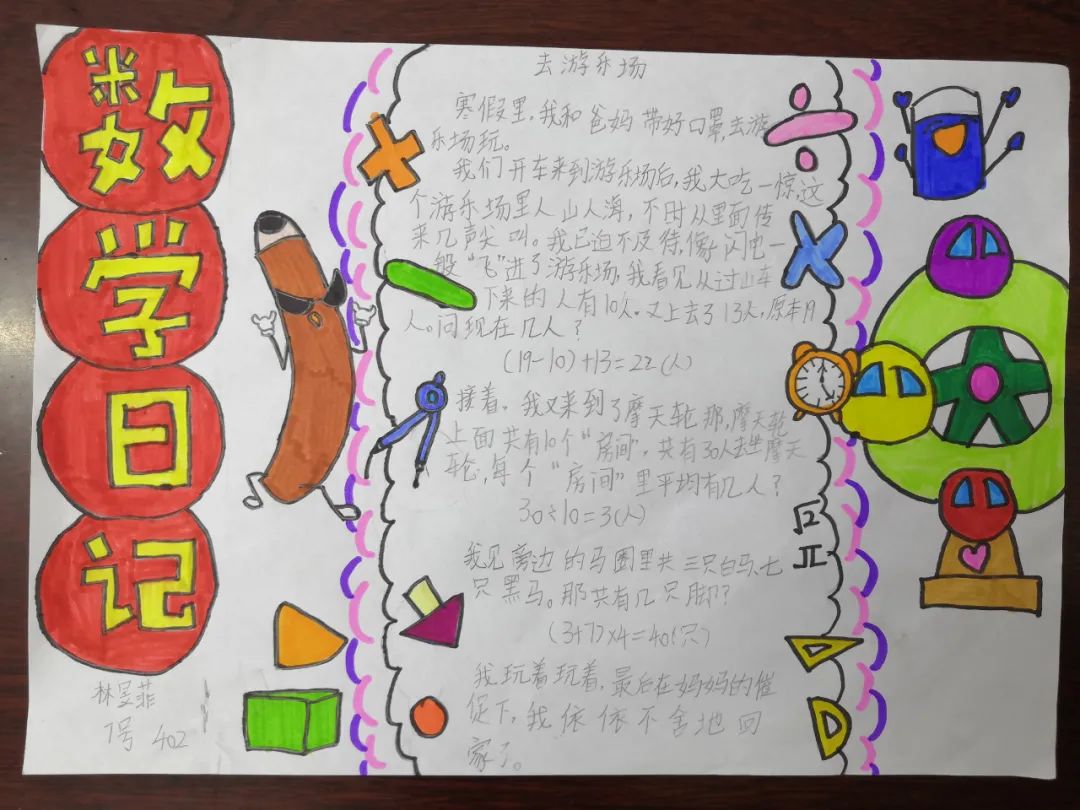 数学日记
去游乐场
寒假里，我和爸妈带好口罩，去游
乐场玩。
我们开车来到游乐场后，我大吃一惊，这
个游乐场里人山人海，不时从里面传
来几声尖叫。我已迫不及待，像闪电一
般“飞”进了游乐场，我看见从过山车
下来的人有10人。又上去了13人，原本19
人。问现在几人？
(19-10)+13=22(人)
接着，我又来到了摩天轮那，摩天轮
上面共有10个“房间”，共有30人去坐摩天
轮，每个“房间”里平均有几人？
30÷10=3(人)
我见旁边的马圈里共三只白马、七
只黑马。那共有几只脚？
(3+7)×4=40(只)
我玩着玩着，最后在妈妈的催
促下，我依依不舍地回
家了。
林昱菲
7号 402